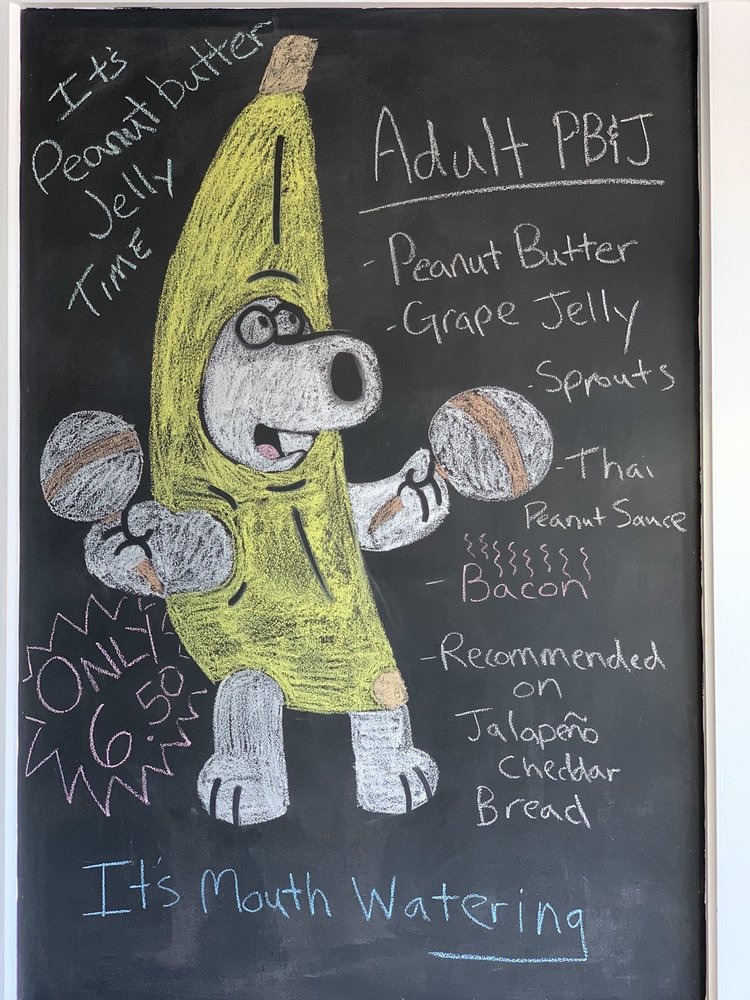 It's
Peanut butter
Jelly
TIME
Adult PB&J
- Peanut Butter
- Grape Jelly
- Sprouts
- Thai
Peanut Sauce
- Bacon
- Recommended
on
Jalapeño
Cheddar
Bread
ONLY
6.50
It's Mouth Watering